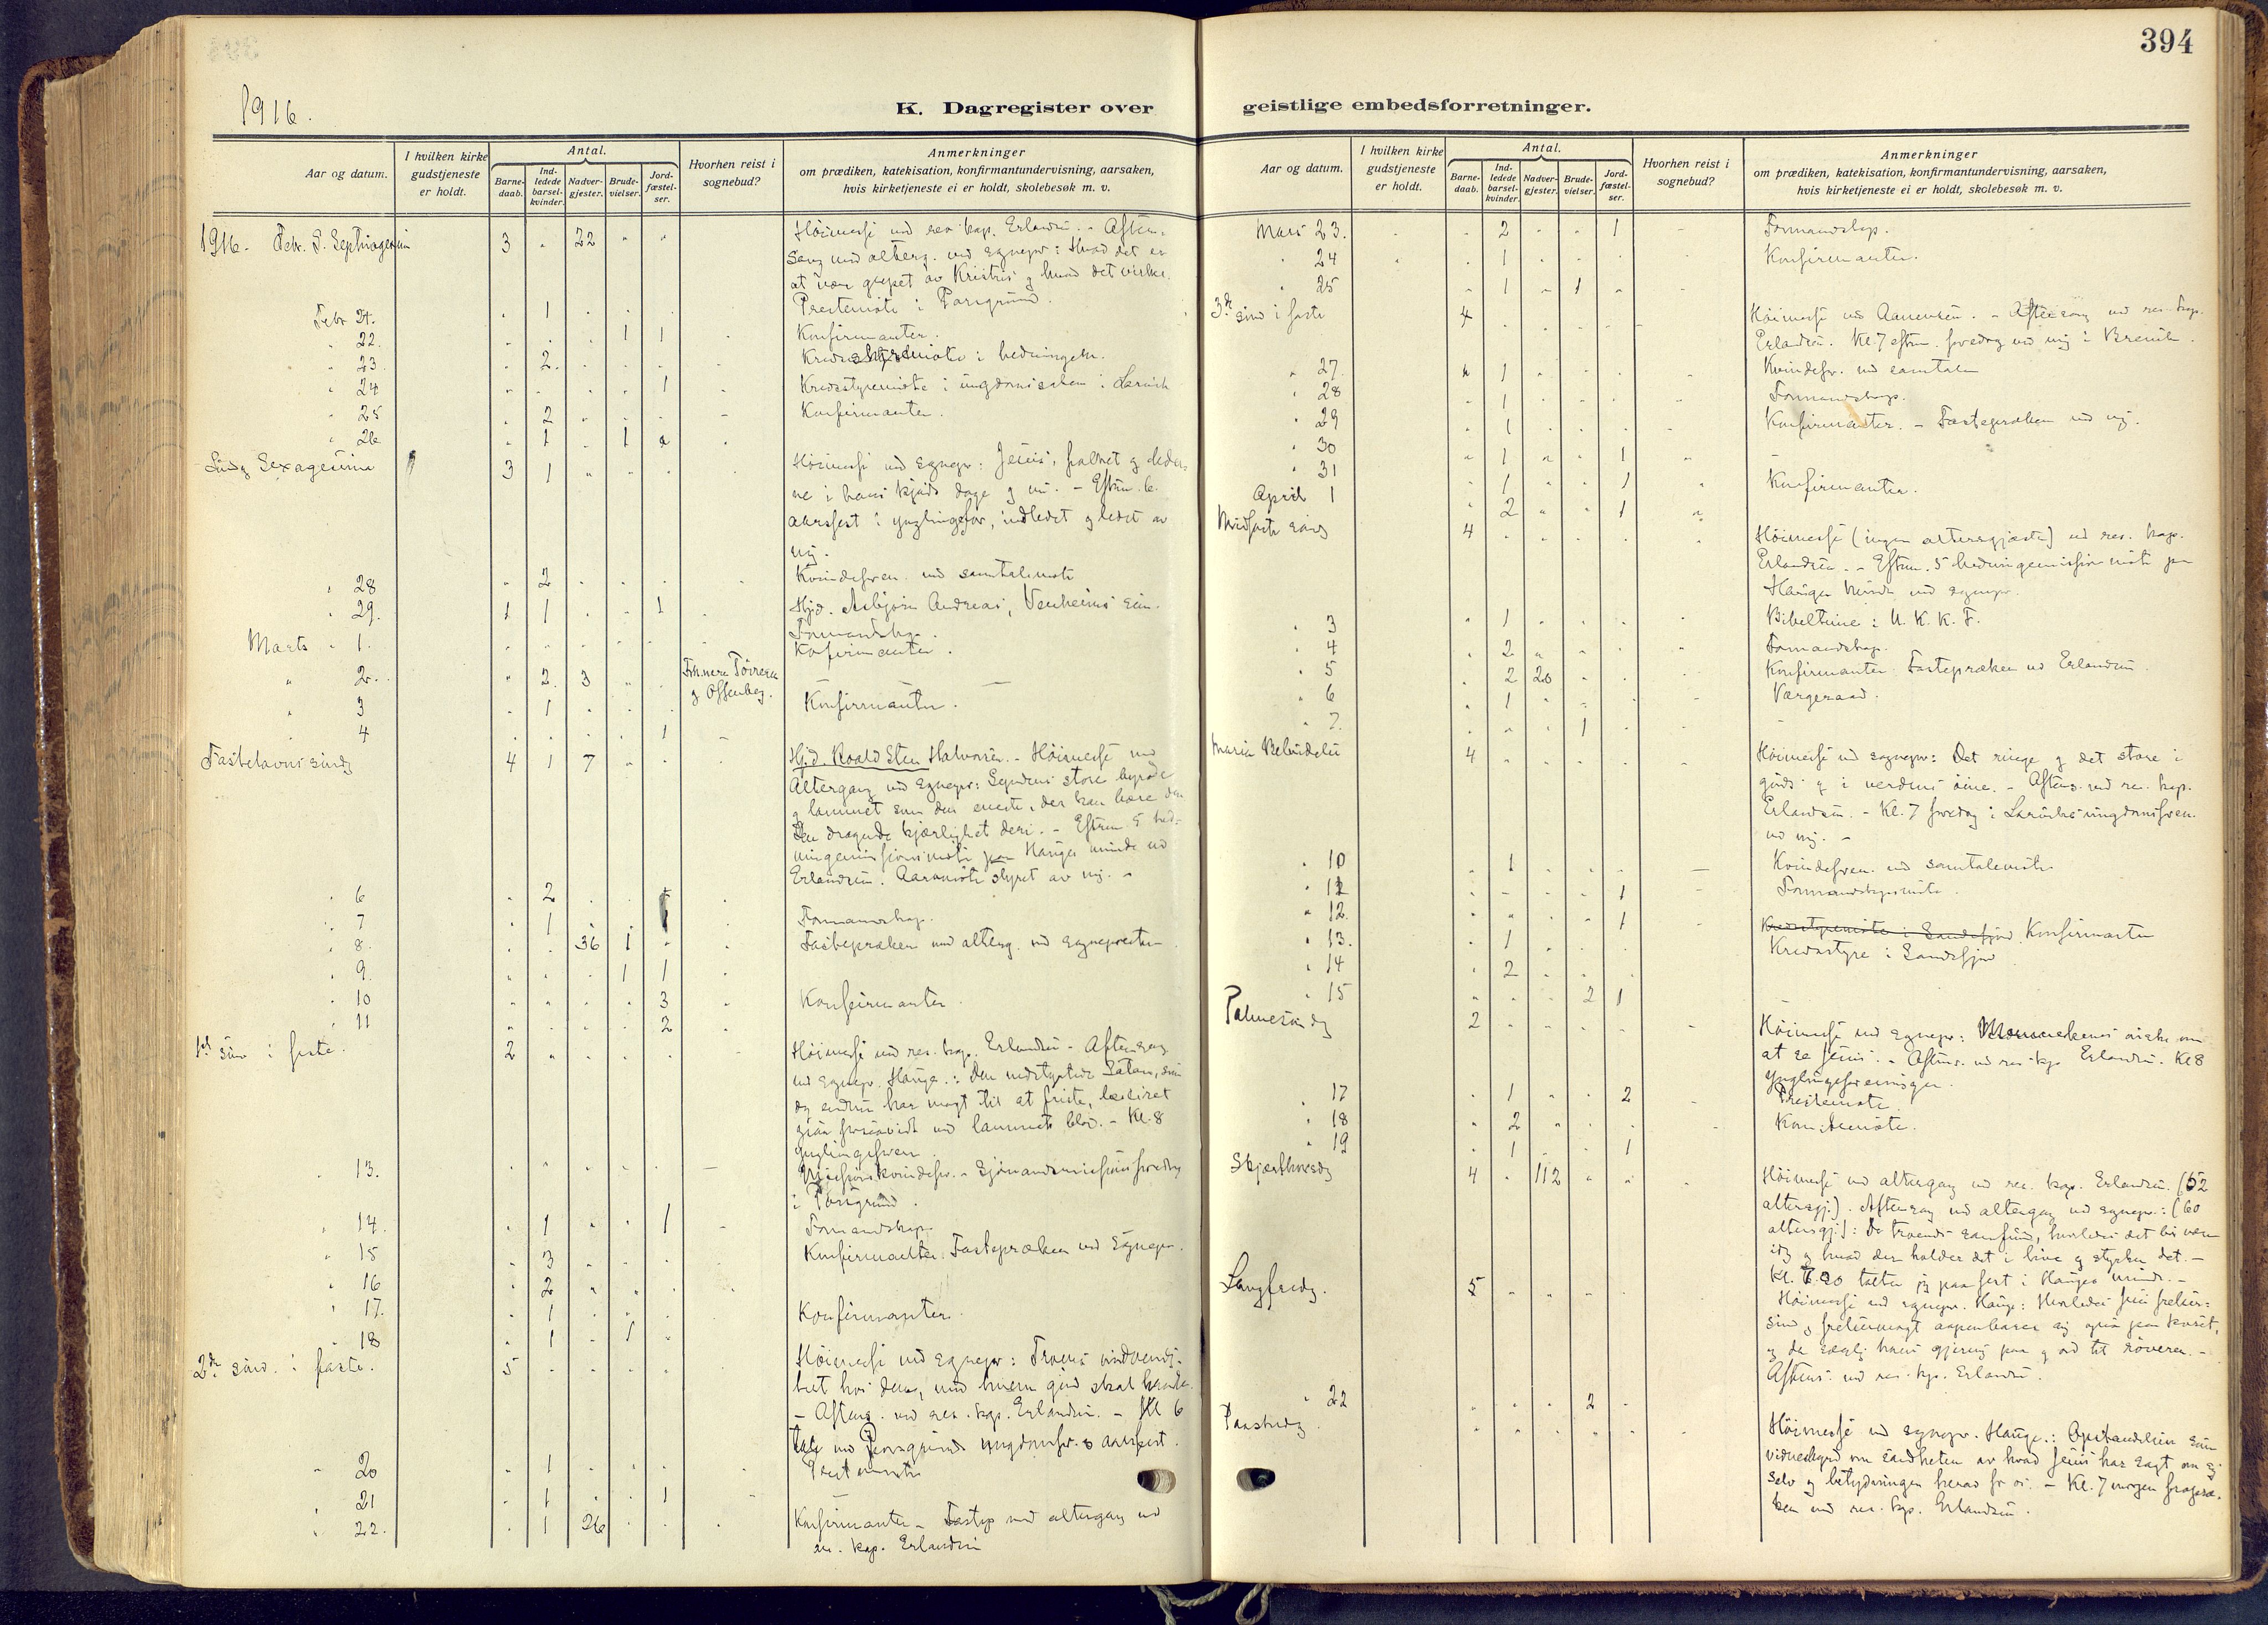 394
1916.
K. Dagregister over geistlige embedsforretninger.
Aar og datum.
I hvilken kirke gudstjeneste er holdt.
Antal.
Barne-daab.
Ind-ledede barsel-kvinder.
Nadver-gjester.
Brude-vielser.
Jord-fæstel-ser.
Hvorhen reist i sognebud?
Anmerkninger
om prædiken, katekisation, konfirmantundervisning, aarsaken,
hvis kirketjeneste ei er holdt, skolebesøk m. v.
1916. Febr. S. Septuagesima 3 " 22 " " Høimesse ved res. kap. Erlandsen. - Aften-
sang med alterg. ved sognepr: Hvad det er
at være grepet av Kristus og hvad det virker.
Febr 21. " 1 Prestemøte i Porsgrund.
" 22. 1 1 Konfirmanter.
" 23. " 2. i hedningem.
" 24 1 Kredsstyremøte i ungdomssaken i Larvik
" 25 " 2 Konfirmanter.
" 26 " 1 " 1
Sexagesima 3 1 Høimesse ved sognepr: Jesus, folket og lederne
i hans kjøds dage og nu. - Eftm. 6.
aarsfest i ynglingefor, indledet og ledet av
mig.
" 28 " 2 Kvindeforen. med samtalemøte
" 29. 1 1 1 Hjd. Asbjørn Andreas,
Formandskap.
Marts 1. Konfirmanter.
" 2. " 2. 3
" 3 " 1 Konfirmanter.
" 4 1
Fastelavns sønd 4 1 7 Hjd. Roald Sten Halvorsen. - Høimesse med
Altergang ved Sognepr: Syndens store byrde
og lammet som den eneste, der kan bære den
Den dragende kjærlighet deri. - Eftm 5 hed-
ningemissionsmøte paa Hauges minde ved
Erlandsen. Aarsmøte styret av mig. -
" 6 " 2
" 7 " 1 Formandskap.
" 8. 36 1 Fastepræken med alterg. ved sognepresten
" 9. 1 1
" 10 3 Konfirmanter.
" 11 2
1st søn i faste. 2 Høimesse ved res. kap. Erlandsen - Aftensang
ved sognepr. Hauge.: Den nedstyrtede Satan, som
dog endnu har magt til at friste,
forsaavidt ved lammets blod. - Kl. 8
ynglingeforen.
" 13. Missionskvindefor. - Sjømandsmissionsforedrag
i Porsgrund.
" 14. " 1 1 Formandskap.
" 15 " 3 Konfirmanter. Fastepræken ved Sognepr.
" 16 " 2
" 17. " 1 Konfirmanter.
" 18 " 1 " 1
2den sønd. i faste. 5 Høimesse ved sognepr: Troens nødvendig-
het hos dem, med hvem gud skal handle.
- Aftens. ved res. kap. Erlandsen. - Kl 6
tale ved Porsgrunds ungdomsfor.s aarsfest.
" 20 " 1 Prestemøte
" 21 " 1 1
" 22. " 1 26 Konfirmanter - Fastep med altergang ved
res. kap. Erlandsen
Aar og datum.
I hvilken kirke gudstjeneste er holdt.
Antal.
Barne-daab.
Ind-ledede barsel-kvinder.
Nadver-gjester.
Brude-vielser.
Jord-fæstel-ser.
Hvorhen reist i sognebud?
Anmerkninger
om prædiken, katekisation, konfirmantundervisning, aarsaken,
hvis kirketjeneste ei er holdt, skolebesøk m. v.
Mars 23. " 2 " " 1 Formandskap.
" 24 " 1 Konfirmanter.
" 25 " 1 " 1
3de sønd i faste 4 Høimesse ved - Aftensang ved res. kap.
Erlandsen. Kl. 7 eftm. foredrag ved mig i Brevik.
" 27. " 1 Kvindefor. med samtale
" 28 " 1 Formandskap.
" 29 " 1 Konfirmanter. - Fastepræken ved mig.
" 30 " 1 1
" 31 " 1 1 Konfirmanter.
April 1 " 2 1
Midfaste sønd 4 Høimesse (ingen altersgjæster) ved res. kap.
Erlandsen. - Eftm. 5 hedningemissionsmøte paa
Hauges minde ved sognepr.
" 3 " 1 Bibeltime i U. K. K. F.
" 4 " 2 Formandskap.
" 5 " 2 20 Konfirmanter Fastepræken ved Erlandsen
" 6 " 1 Værgeraad.
" 7. 1
Maria Bebudelse 4 Høimesse ved sognepr: Det ringe og det store i
guds og i verdens øine. - Aftens. ved res. kap.
Erlandsen. - Kl. 7 foredrag i Larviks ungdomsforen.
ved mig. -
" 10 " 1 Kvindeforen. med samtalemøte
" 12 1 Formandskapsmøte.
" 12. 1
" 13. " 1 Kredsstyremøte i Sandefjord Konfirmanter
" 14 " 2 Kredsstyre i Sandefjord
" 15 2 1
Palmesøndag 2 Høimesse ved sognepr: Menneskenes ønske om
at se Jesus. - Aftens. ved res. kap Erlandsen. Kl 8
ynglingeforeningen.
" 17 " 1 2 Prestemøte
" 18 " 2
" 19 " 1 1
Skjærthorsdg 4 " 112 Høimesse med altergang ved res. kap. Erlandsen. (52
altersgj.). Aftensang med altergang ved sognepr.: (60
altersgj.): De troendes samfund, hvorledes det bør være
og hvad der holder det i live og styrker det. -
Kl. 7.30 talte jeg paa fest i Hauges minde. -
Langfredg. 5 Høimesse ved sognepr. Hauge: Hvorledes Jesu frelser-
sind og frelsermagt aapenbarer sig ogsaa paa korset,
og da særlig hans gjerning paa og ord til røveren. -
Aftens. ved res. kap. Erlandsen.
" 22 2
Paaskedg. Høimesse ved sognepr. Hauge.: Opstandelsen som
vidnesbyrd om sandheten av hvad Jesus har sagt om sig
selv og betydningen herav for os. - Kl. 7 morgen
ved res. kap. Erlandsen.